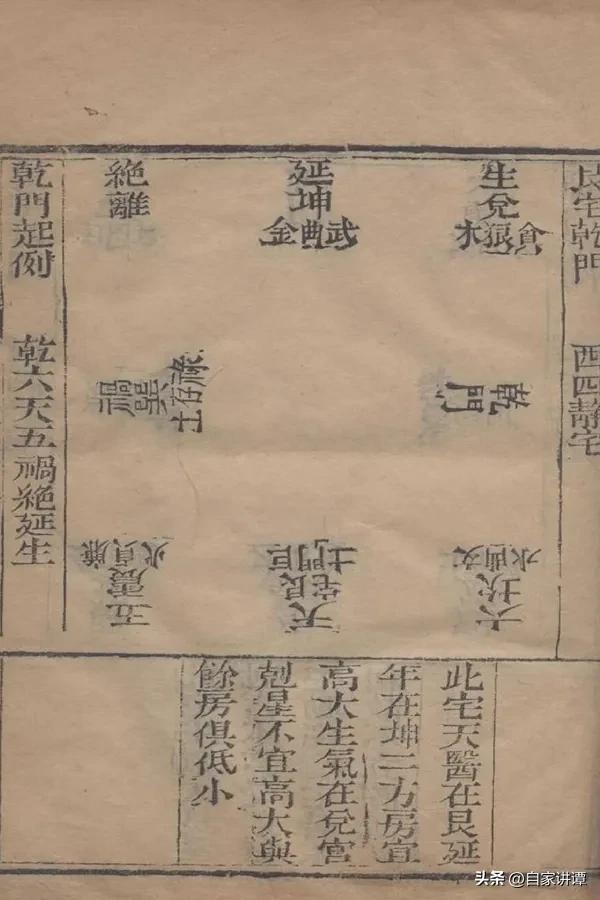 艮宅乾門　西四靜宅
生兌
貪狼木
延坤
武曲金
絕離
乾門
禍巽
祿存土
六坎
文曲水
天艮宅
巨門土
五震
廉貞火
乾門起例　乾六天五禍絕延生
此宅天醫在艮延
年在坤二方房宜
高大生氣在兌宮
剋星不宜高大與
餘房俱低小
头条 @自家讲谭